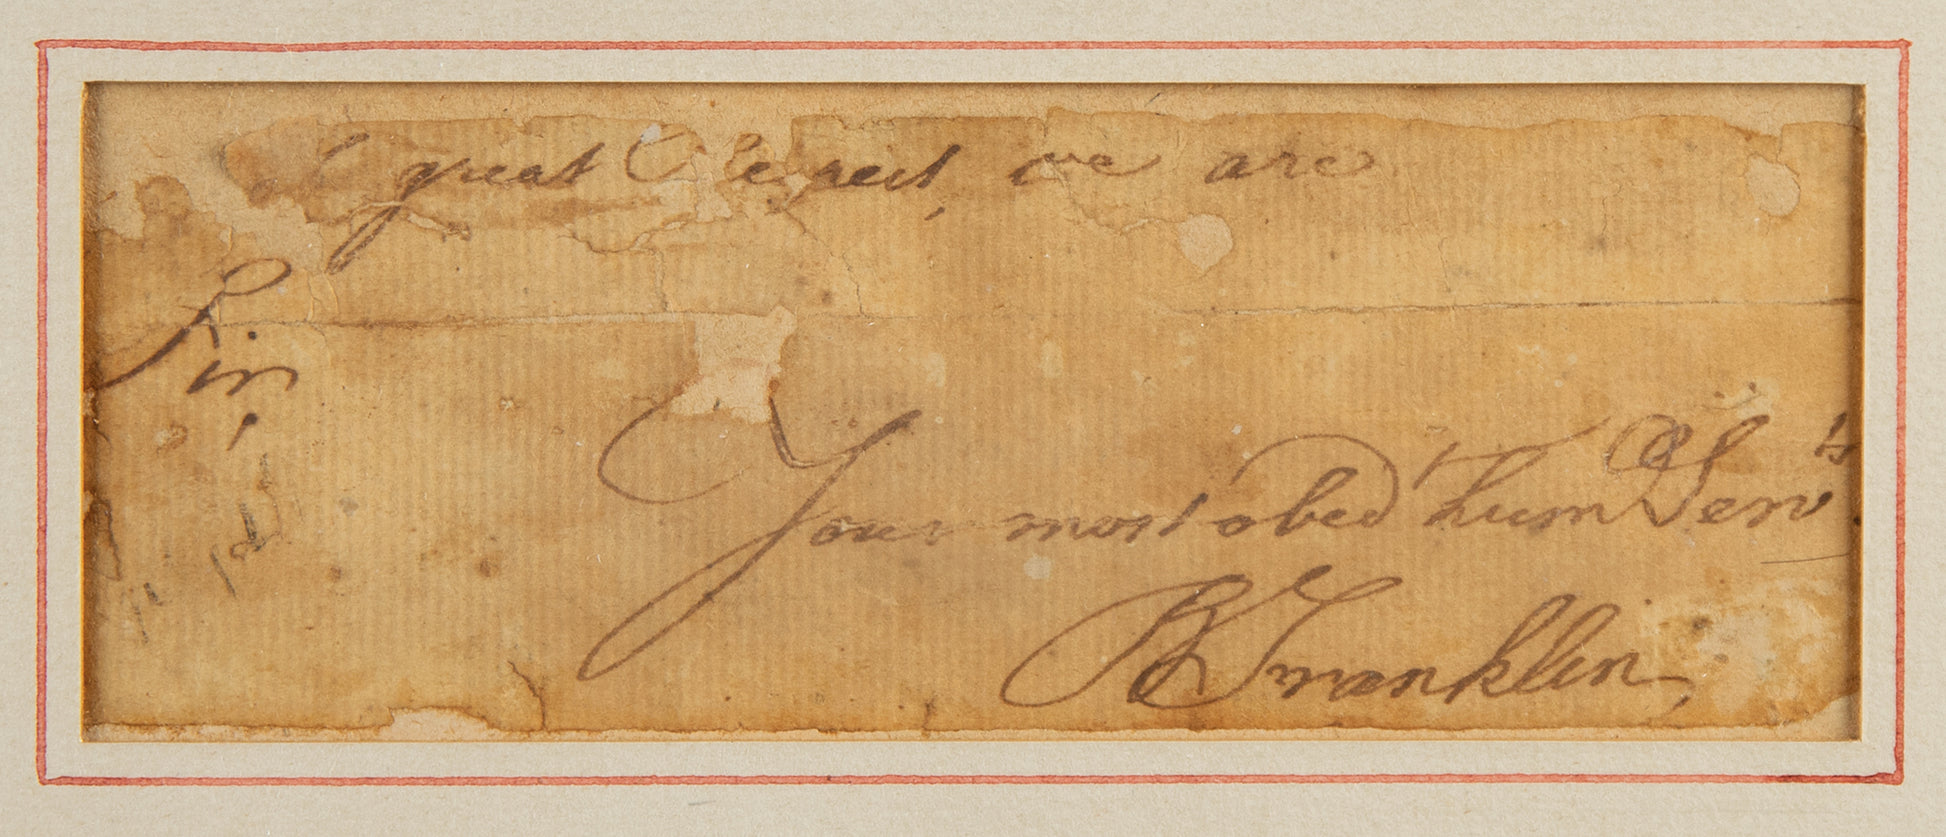 great Respect, we are
Sir,
Your most obedt. hum Servts.
B Franklin